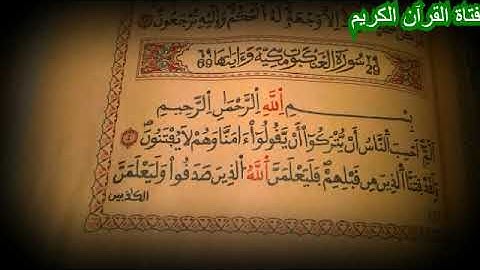 فتاة القرآن الكريم
إِلَّا وَجْهَهُ لَهُ الْحُكْمُ وَإِلَيْهِ تُرْجَعُونَ
29 سورة العنكبوت مكية وءاياتها 69
بِسْمِ اللَّهِ الرَّحْمَٰنِ الرَّحِيمِ
أَلَمِّ أَحَسِبَ النَّاسُ أَنْ يُتْرَكُوا أَنْ يَقُولُوا ءَامَنَّا وَهُمْ لَا يُفْتَنُونَ
وَلَقَدْ فَتَنَّا الَّذِينَ مِن قَبْلِهِمْ فَلَيَعْلَمَنَّ اللَّهُ الَّذِينَ صَدَقُوا وَلَيَعْلَمَنَّ
الْكَاذِبِينَ